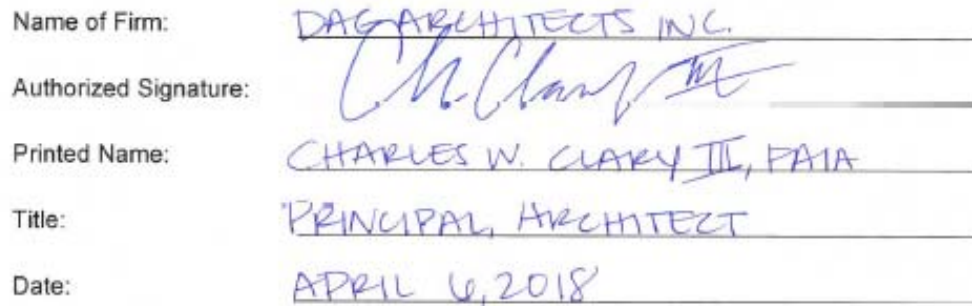 Name of Firm: DAG ARCHITECTS INC.
Authorized Signature: Ch. Clary III
Printed Name: CHARLES W. CLARY III, FAIA
Title: PRINCIPAL, ARCHITECT
Date: APRIL 6, 2018